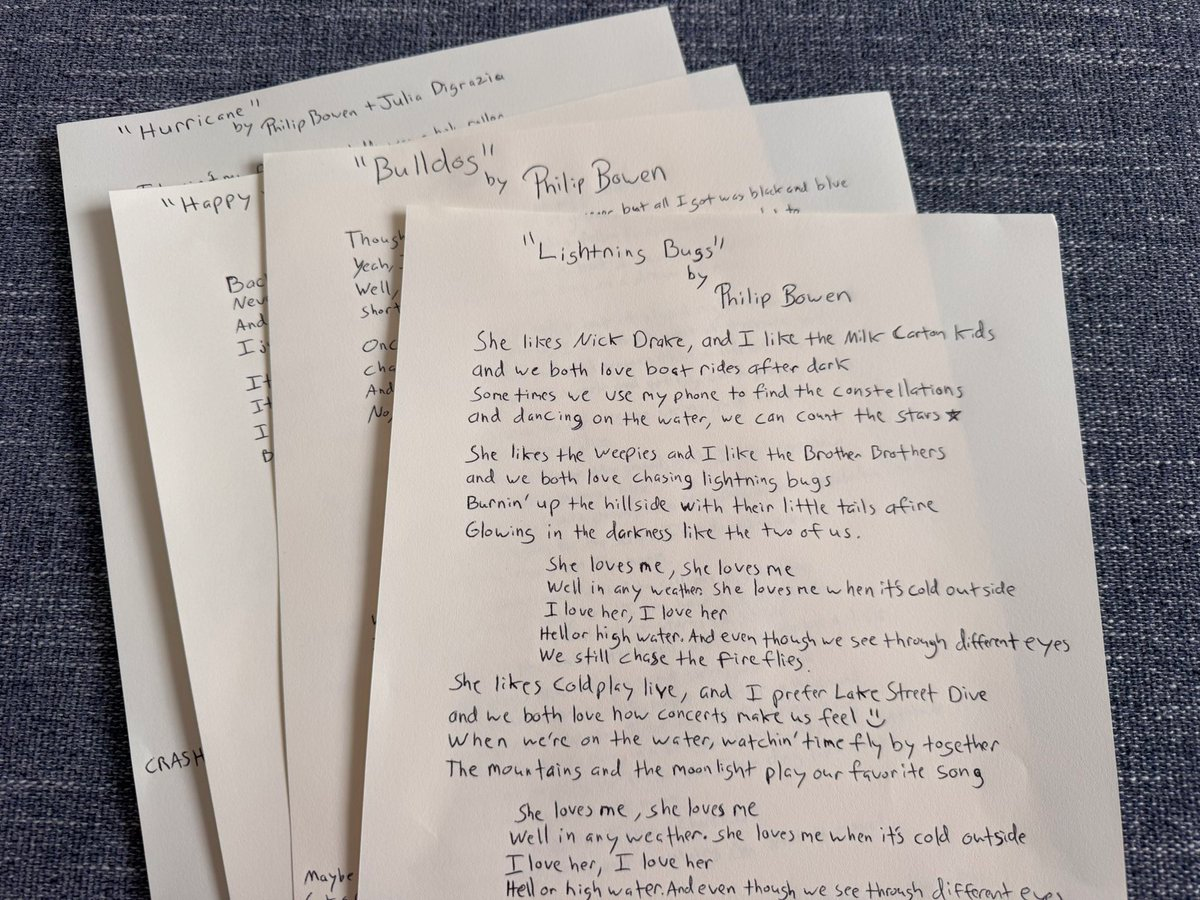 "Hurricane"
by Philip Bowen + Julia Digrazia
"Happy
Bac
Nev
And
I j
It
It
I
B
CRASH
"Bulldog"
by Philip Bowen
but all I got was black and blue
to
Though
Yeah,
Well,
short
Onc
cha
And
No,
Maybe
"Lightning Bugs"
by
Philip Bowen
She likes Nick Drake, and I like the Milk Carton Kids
and we both love boat rides after dark
Sometimes we use my phone to find the constellations
and dancing on the water, we can count the stars★
She likes the Weepies and I like the Brother Brothers
and we both love chasing lightning bugs
Burnin' up the hillside with their little tails afire
Glowing in the darkness like the two of us.
She loves me, she loves me
Well in any weather. She loves me when it's cold outside
I love her, I love her
Hell or high water. And even though we see through different eyes
We still chase the fireflies.
She likes Coldplay live, and I prefer Lake Street Dive
and we both love how concerts make us feel
When we're on the water, watchin' time fly by together
The mountains and the moonlight play our favorite song
She loves me, she loves me
Well in any weather. She loves me when it's cold outside
I love her, I love her
Hell or high water. And even though we see through different eyes